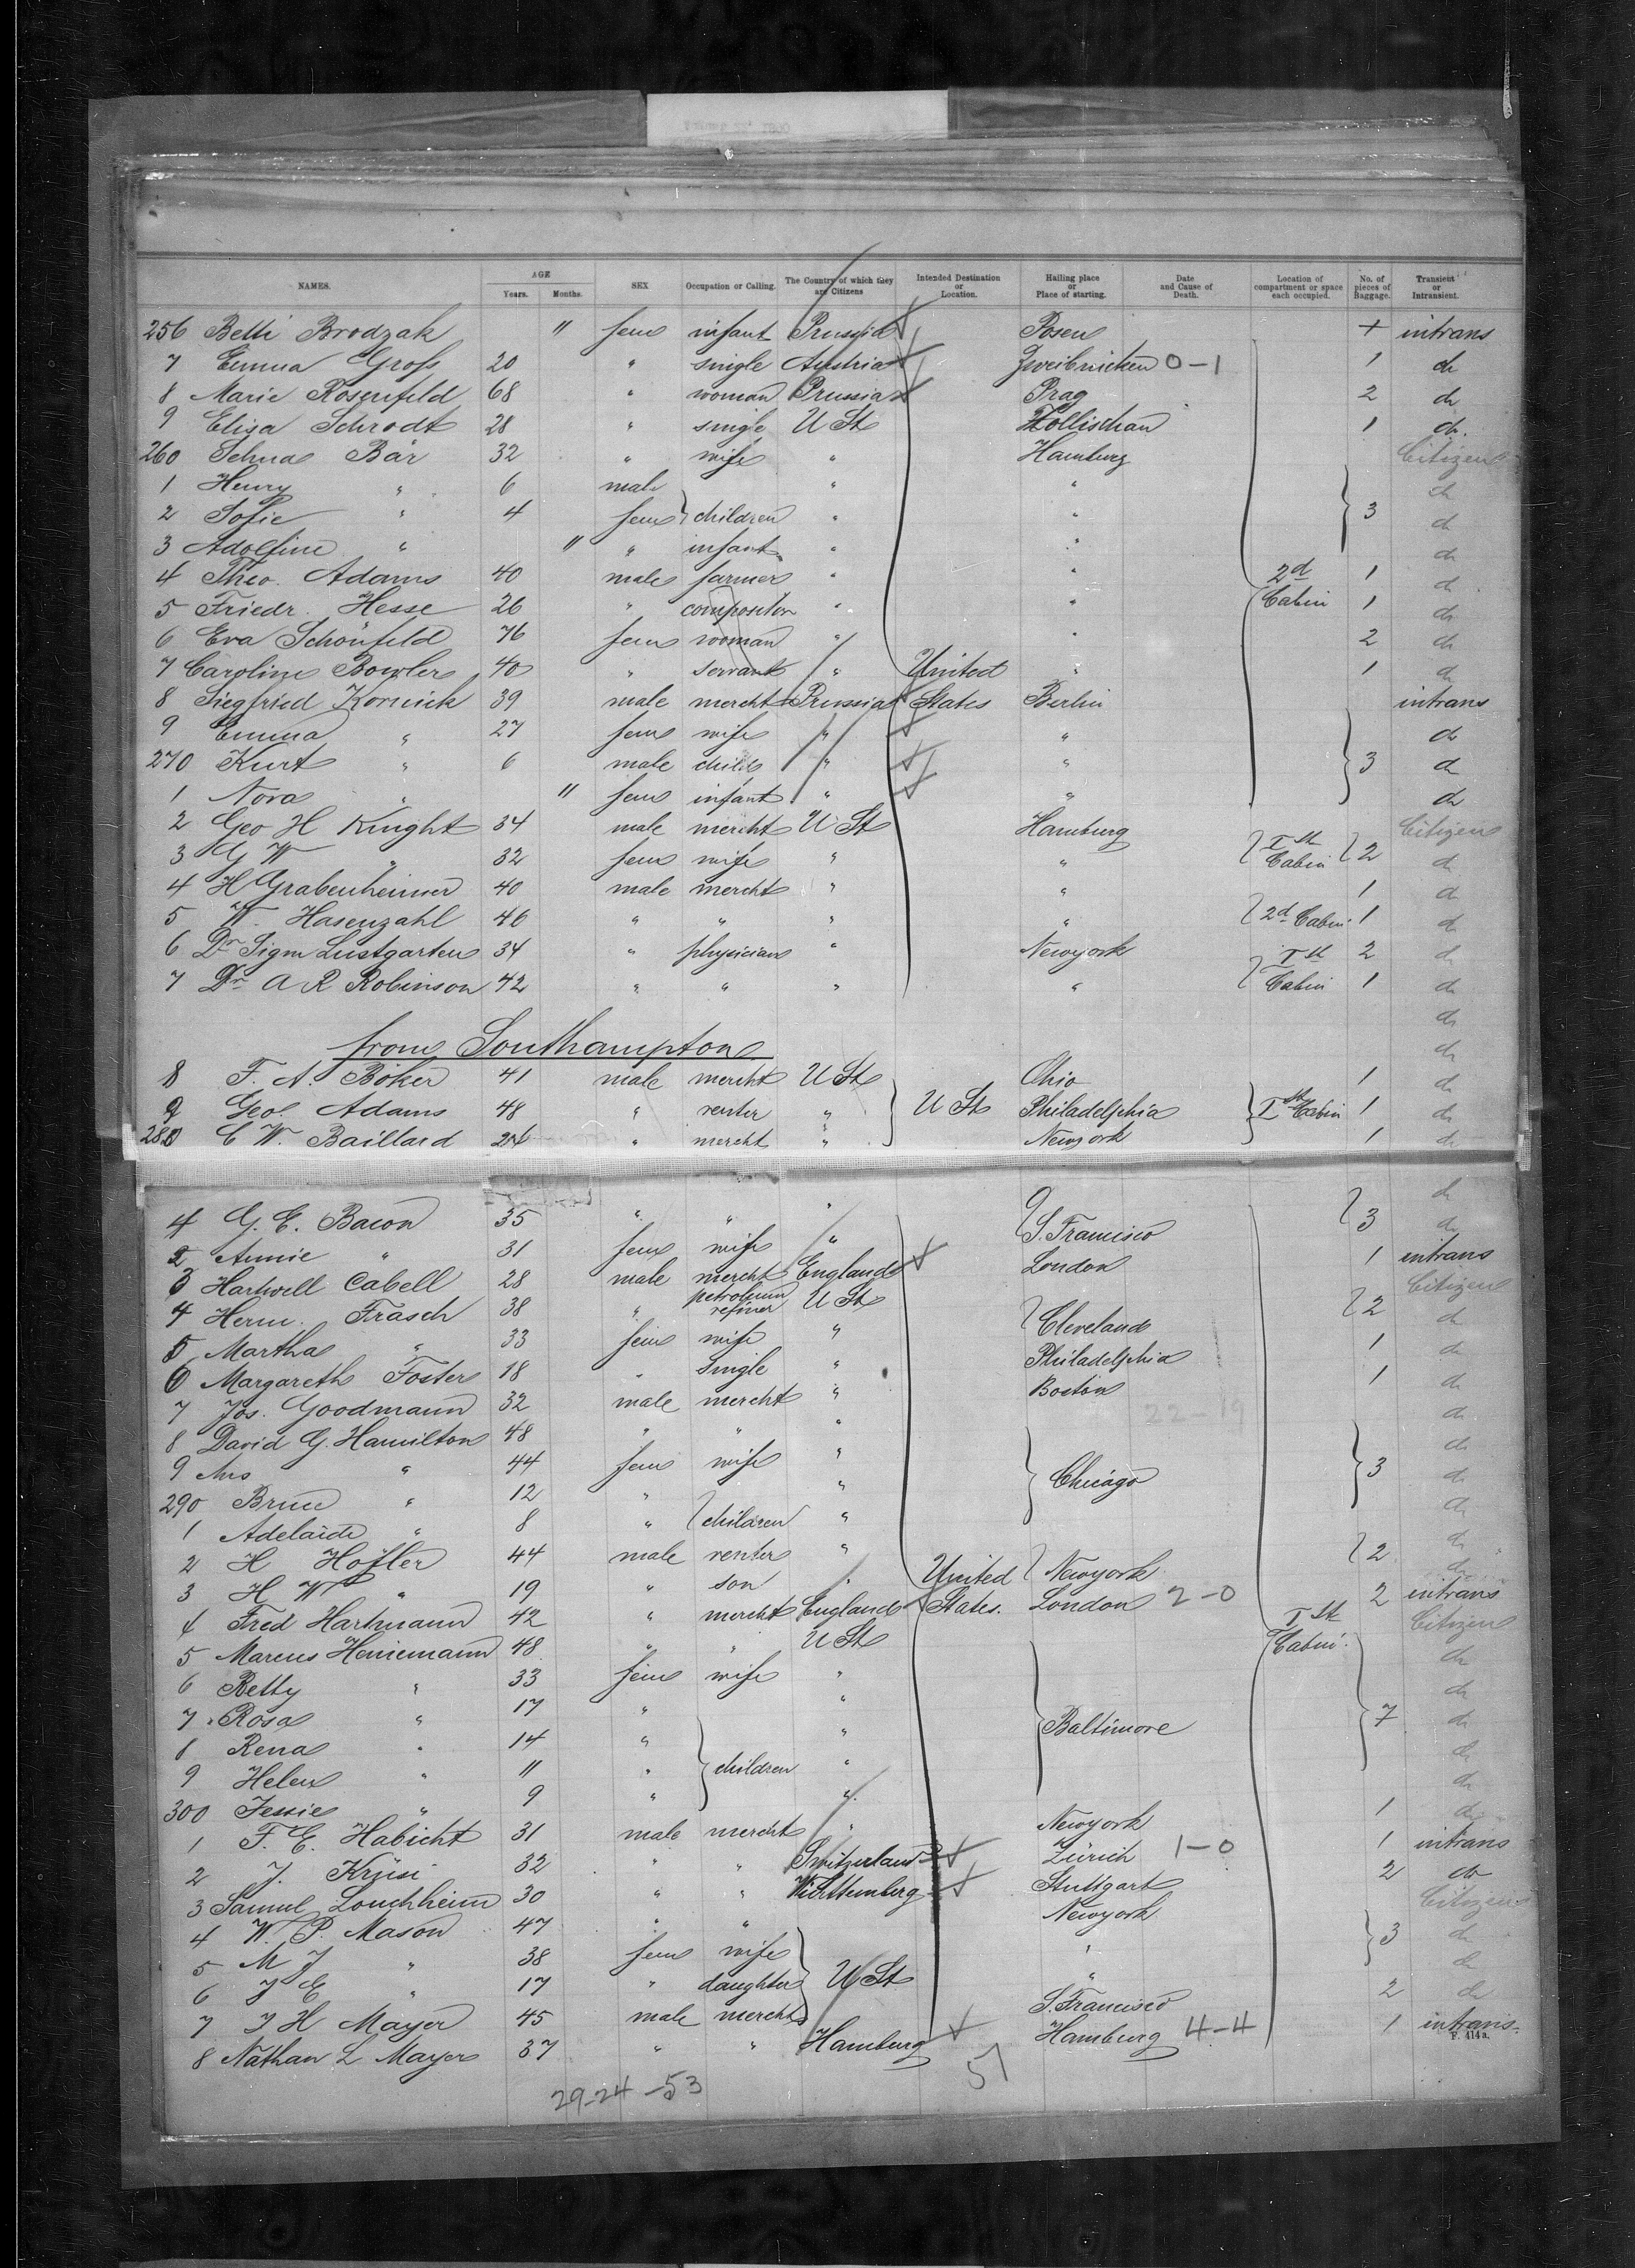 NAMES. AGE Years. Months. SEX Occupation or Calling. The Country of which they are Citizens Intended Destination or Location. Hailing place or Place of starting. Date and Cause of Death. Location of compartment or space each occupied. No. of pieces of Baggage. Transient or Intransient.
256 Betti Brodzak " fem infant Prussia Posen + intrans
7 Emma Groß 20 " single Austria Zweibrücken 0-1 1 do
8 Marie Rosenfeld 68 " woman Prussia Prag 2 do
9 Elisa Schrodt 28 " single U St Hollischau 1 do.
260 Selma Bär 32 " wife " Hamburg Citizen
1 Henry " 6 male " " do
2 Sofie " 4 fem } children " " } 3 do
3 Adolfine " " " infant " " do
4 Theo. Adams 40 male farmer " " 2d 1 do
5 Friedr. Hesse 26 " compositor " " Cabin 1 do
6 Eva Schönfeld 76 fem woman " " 2 do
7 Caroline Bowler 40 " servant " United " 1 do
8 Siegfried Kornick 39 male mercht Prussia States Berlin intrans
9 Emma " 27 fem wife " " do
270 Kurt " 6 male child " " } 3 do
1 Nora " " fem infant " " do
2 Geo H Knight 34 male mercht U St Hamburg Ist Citizen
3 G W " 32 fem wife " " Cabin 2 do
4 H Grabenheimer 40 male mercht " " 1 do
5 W. Hasenzahl 46 " " " " 2d Cabin 1 do
6 Dr Sigm Lustgarten 34 " physician " Newyork Ist 2 do
7 Dr A R Robinson 42 " " " " Cabin 1 do
do
from Southampton do
8 F. A. Böker 41 male mercht U St Ohio 1 do
9 Geo. Adams 48 " renter " } U St Philadelphia Ist Cabin 1 do
280 C W. Baillard 24 " mercht " Newyork 1 do
do
4 G. E. Bacon 35 " " " S. Francisco 3 do
2 Annie " 31 fem wife "
3 Hartwell Cabell 28 male mercht England London 1 intrans
4 Herm. Frasch 38 " petroleum refiner U St Cleveland 2 Citizen
5 Martha " 33 fem wife " do
6 Margareth Foster 18 " single " Philadelphia 1 do
7 Jos. Goodmann 32 male mercht " Boston 1 do
22-19
8 David G. Hamilton 48 " " " do
9 Mrs " 44 fem wife " } Chicago } 3 do
290 Bruce " 12 " " do
1 Adelaide " 8 " children " do
2 H Höfler 44 male renter " United Newyork 2 do
3 H W " 19 " son " do
4 Fred Hartmann 42 " mercht England States. London 2-0 2 intrans
5 Marcus Heinemann 48 " " U St Ist Cabin. Citizen
6 Betty " 33 fem wife " do
7 Rosa " 17 " " } Baltimore } 7 do
8 Rena " 14 " " do
9 Helen " 11 " } children " do
300 Jessie " 9 " " do
1 F. E. Habicht 31 male mercht " Newyork 1 do
2 J. Krüsi 32 " " Switzerland Zürich 1-0 1 intrans
3 Samuel Louchheim 30 " " Württemberg Stuttgart 2 do
4 W. P. Mason 47 " " Newyork Citizen
5 M J " 38 fem wife " } 3 do
6 J E " 17 " daughter } U St " do
7 J H Mayer 45 male mercht S. Francisco 2 do
8 Nathan L Mayer 37 " " Hamburg Hamburg 4-4 1 intrans.
P. 414a.
29-24-53 51